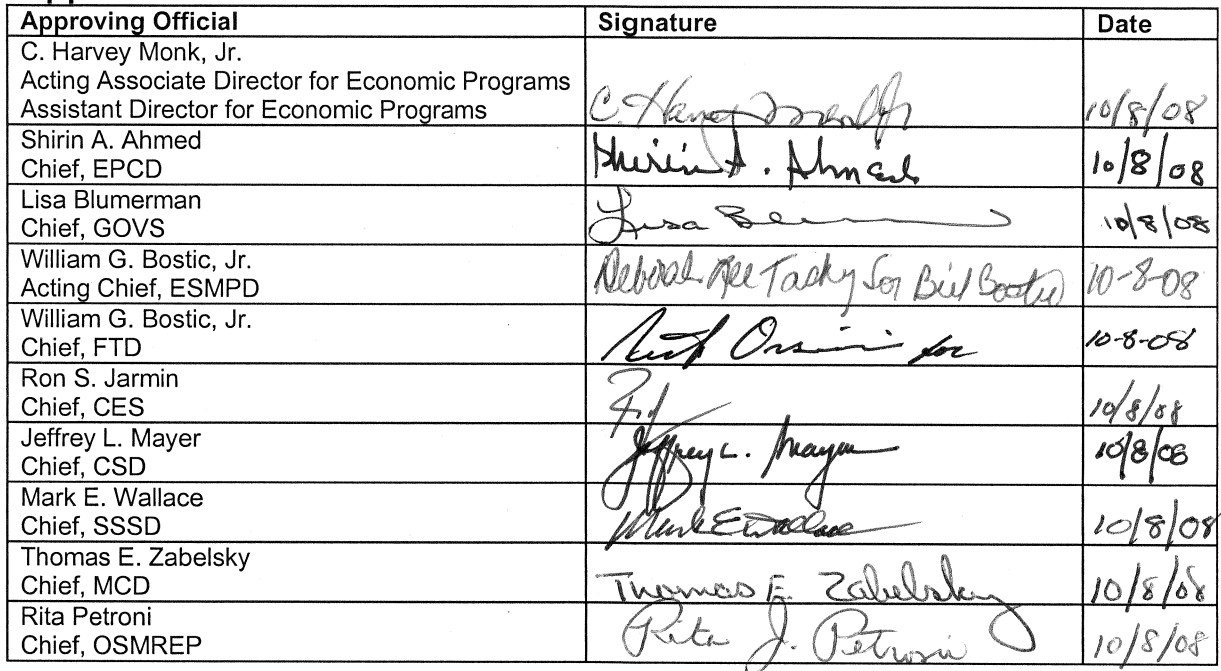 Approving Official Signature Date
C. Harvey Monk, Jr.
Acting Associate Director for Economic Programs
Assistant Director for Economic Programs C. Harvey Monk Jr 10/8/08
Shirin A. Ahmed
Chief, EPCD Shirin A. Ahmed 10/8/08
Lisa Blumerman
Chief, GOVS Lisa 10/8/08
William G. Bostic, Jr.
Acting Chief, ESMPD Deborah Tasky for Bill Bostic 10-8-08
William G. Bostic, Jr.
Chief, FTD Orsini for 10-8-08
Ron S. Jarmin
Chief, CES 10/8/08
Jeffrey L. Mayer
Chief, CSD Jeffrey L. Mayer 10/8/08
Mark E. Wallace
Chief, SSSD Mark E Wallace 10/8/08
Thomas E. Zabelsky
Chief, MCD Thomas E. Zabelsky 10/8/08
Rita Petroni
Chief, OSMREP Rita J. Petroni 10/8/08